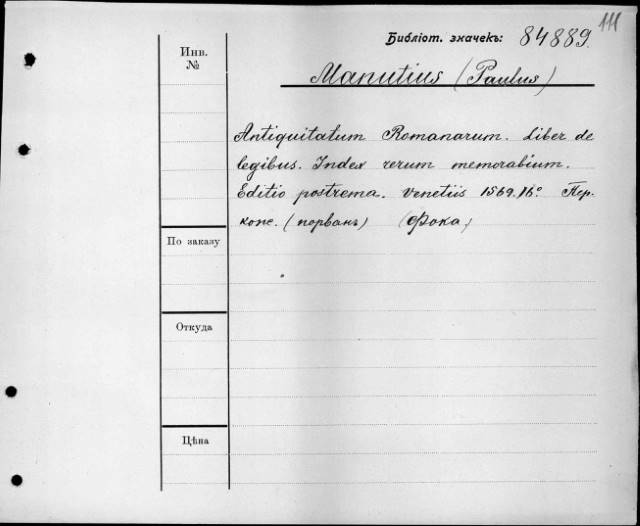 111
Библіот. значекъ: 84889.
Инв.
№
Manutius (Paulus)
Antiquitatum Romanarum. Liber de
legibus. Index rerum memorabium.
Editio postrema. Venetiis 1569. 16°. Пер.
кож. (порванъ) (Фока)
По заказу
Откуда
Цѣна